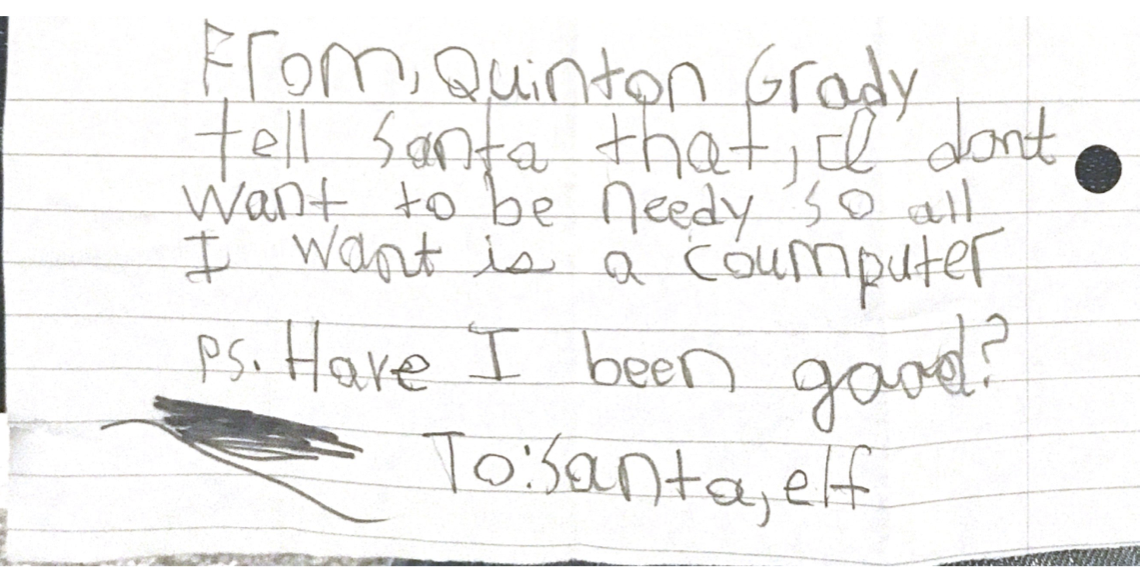 From, Quinton Grady
tell Santa that, I dont
want to be needy so all
I want is a coumputer
Ps. Have I been good?
To: Santa, elf